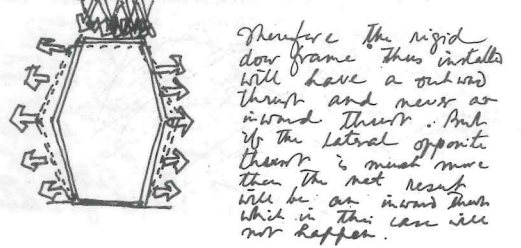 Therefore the rigid
door frame thus installed
will have a outward
thrust and never an
inward thrust. But
if the lateral opposite
thrust is much more
then the net result
will be an inward thrust
which in this case will
not happen.